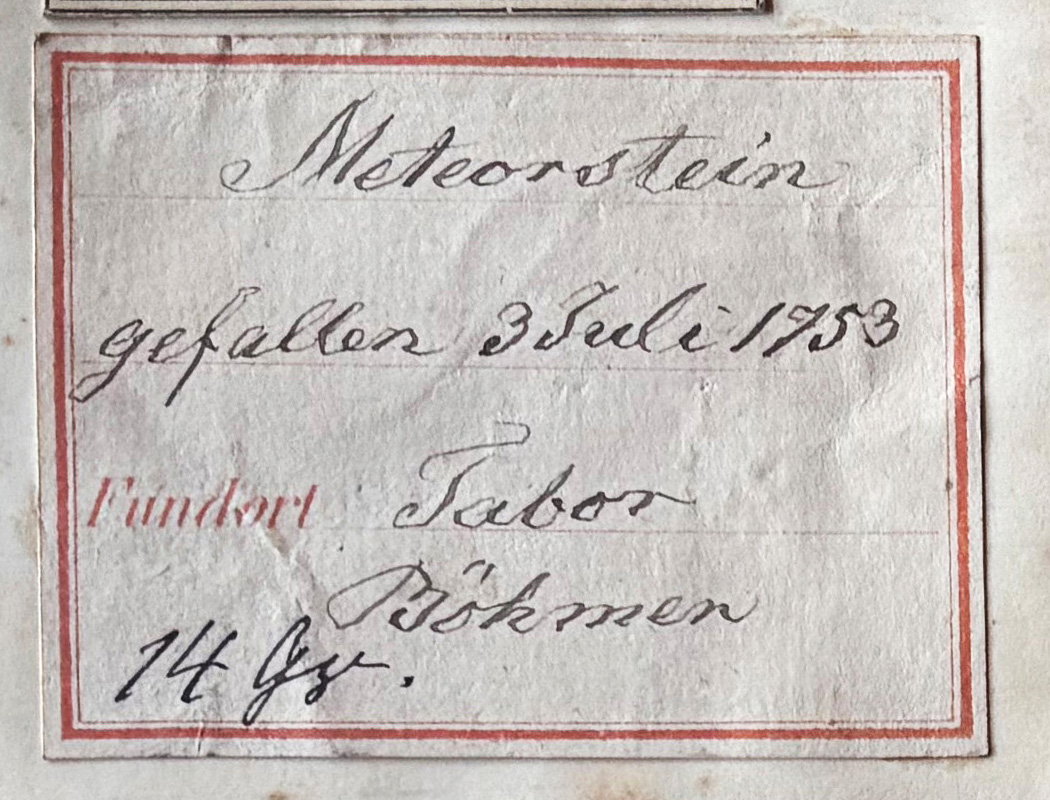 Meteorstein
gefallen 3 Juli 1753
Fundort Tabor
Böhmen
14 Gr.